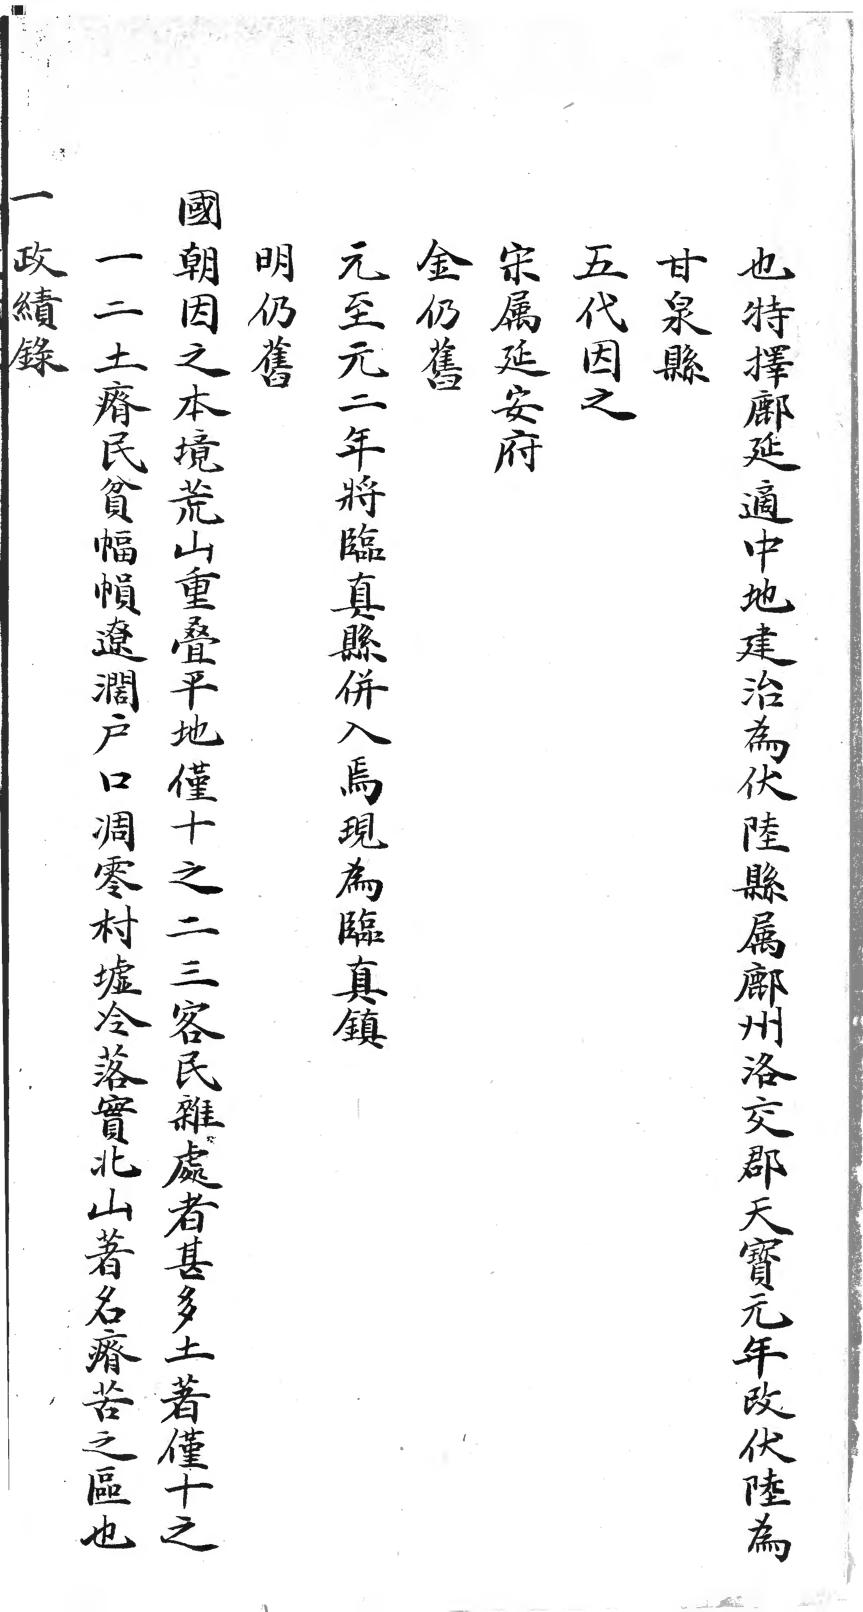 也特擇鄜延適中地建治為伏陸縣属鄜州洛交郡天寶元年改伏陸為
甘泉縣
五代因之
宋属延安府
金仍舊
元至元二年將臨真縣併入焉現為臨真鎮
明仍舊
國朝因之本境荒山重叠平地僅十之二三客民雜處者甚多土著僅十之
一二土瘠民貧幅幀遼濶户口凋零村墟冷落實北山著名瘠苦之區也
一政績錄